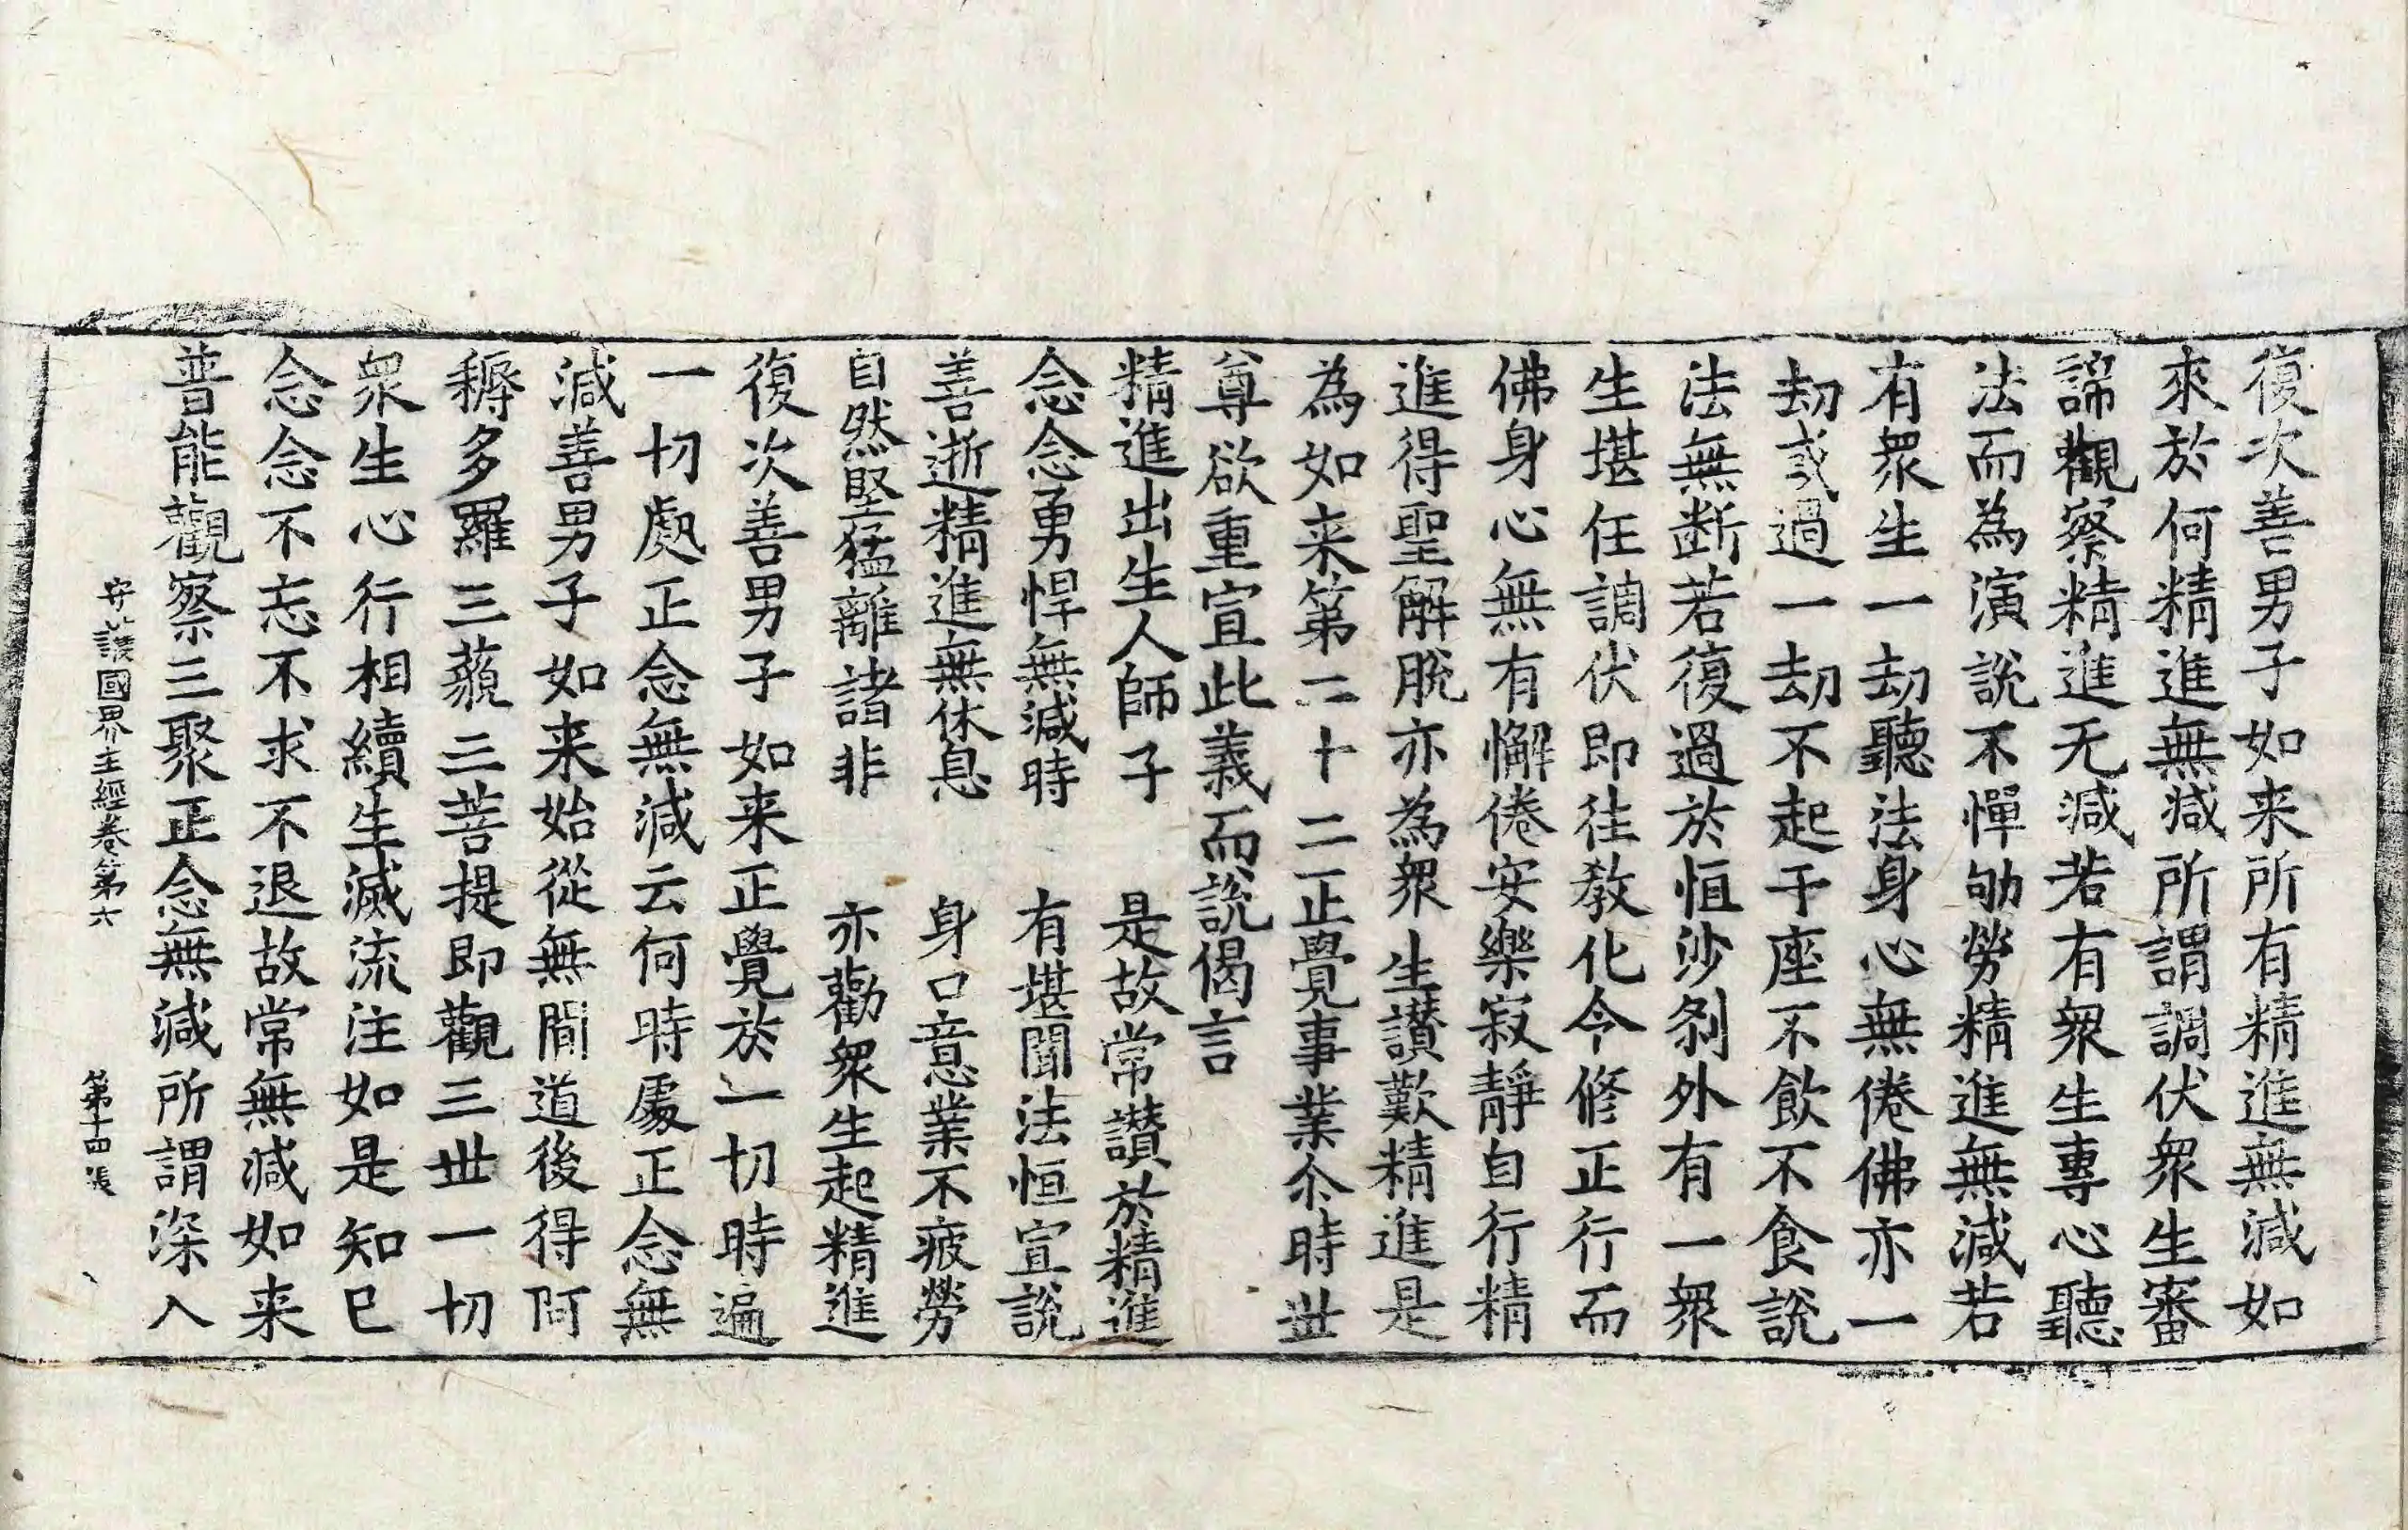 復次善男子如来所有精進無減如
來於何精進無減所謂調伏衆生審
諦觀察精進无減若有衆生專心聽
法而為演說不憚劬勞精進無減若
有衆生一劫聽法身心無倦佛亦一
劫或過一劫不起于座不飲不食說
法無断若復過於恒沙刹外有一衆
生堪任調伏即往教化令修正行而
佛身心無有懈倦安樂寂靜自行精
進得聖解脫亦為衆生讃歎精進是
為如来第二十二正覺事業尒時世
尊欲重宣此義而說偈言
精進出生人師子　是故常讃於精進
念念勇悍無減時　有堪聞法恒宣說
善逝精進無休息　身口意業不疲勞
自然堅猛離諸非　亦勸衆生起精進
復次善男子如来正覺於一切時遍
一切處正念無減云何時處正念無
減善男子如来始從無間道後得阿
耨多羅三藐三菩提即觀三世一切
衆生心行相續生滅流注如是知已
念念不忘不求不退故常無減如来
普能觀察三聚正念無減所謂深入
護國界主經卷第六　第十四張